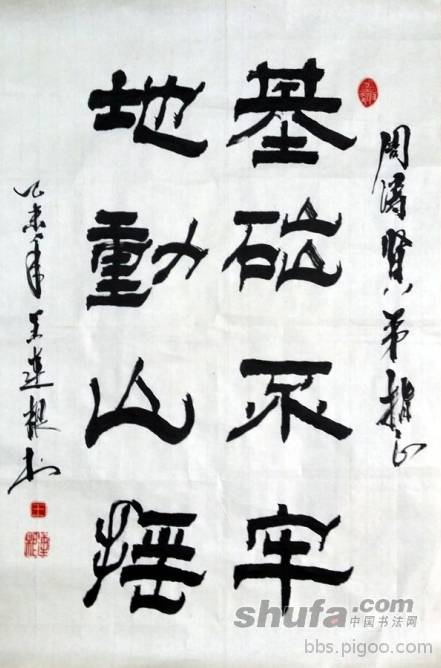 周涛贤弟指正
基础不牢
地動山摇
乙未年王连根书
shufa.com
中国书法网
bbs.pigoo.com